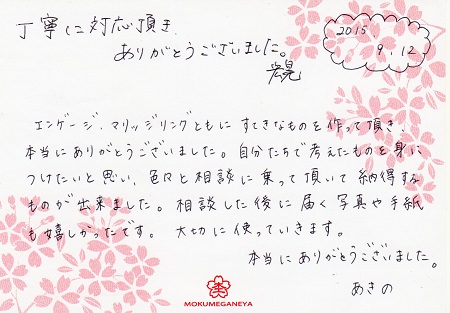 丁寧に対応頂き
ありがとうございました。
宏晃
2015
9.12
エンゲージ、マリッジリングともに すてきなものを作って頂き、
本当にありがとうございました。自分たちで考えたものを身に
つけたいと思い、色々と相談に乗って頂いて納得する
ものが出来ました。相談した後に届く写真や手紙
も嬉しかったです。大切に使っていきます。
本当にありがとうございました。
あきの
MOKUMEGANEYA